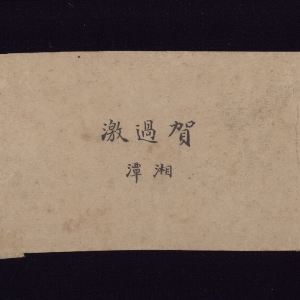 賀過激
湘潭